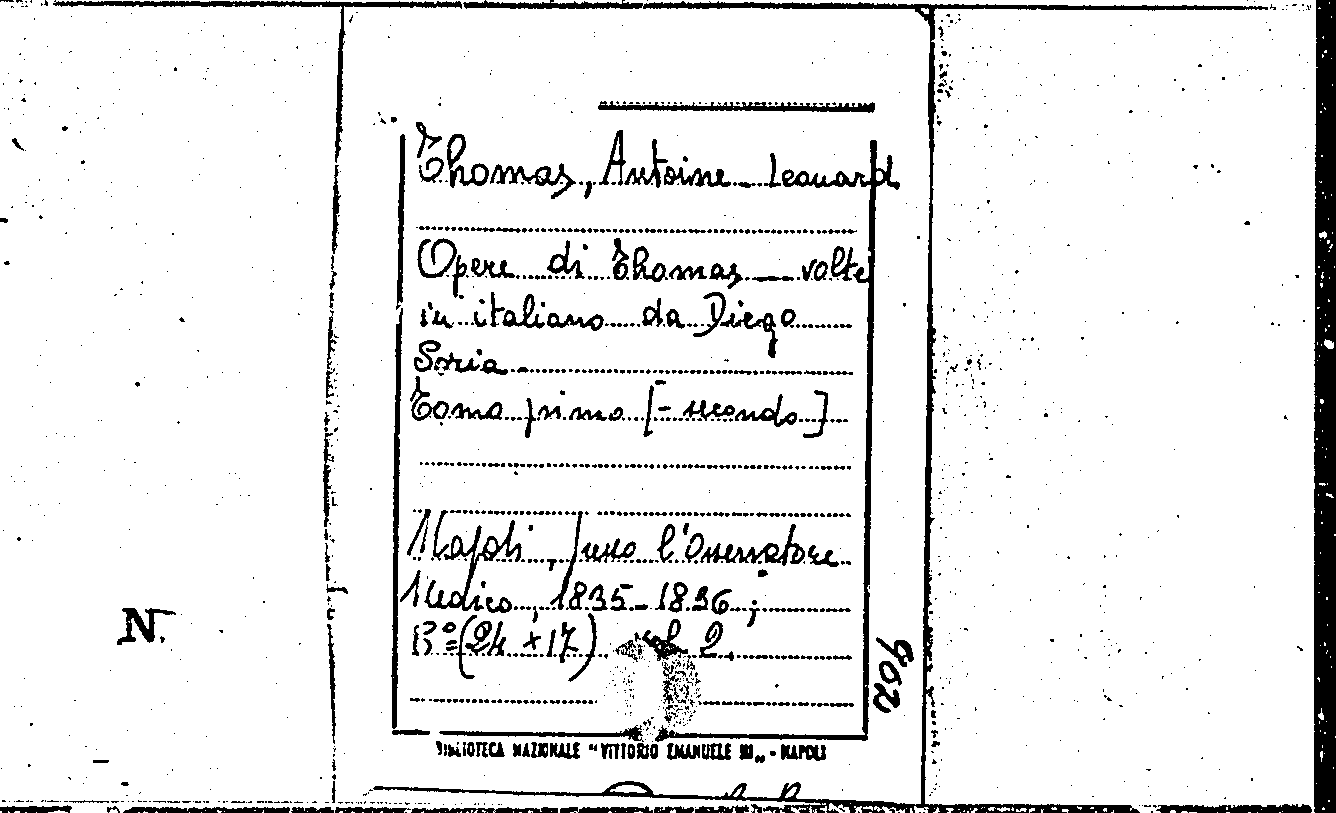 Thomas, Antoine - Leonard
Opere di Thomas — volte
in italiano da Diego
Soria -
Tomo primo [- secondo]
Napoli, presso l'Osservatore
Medico, 1835-1836;
8° (24 x 17) vol. 2.
N.
902
BIBLIOTECA NAZIONALE "VITTORIO EMANUELE III„ - NAPOLI